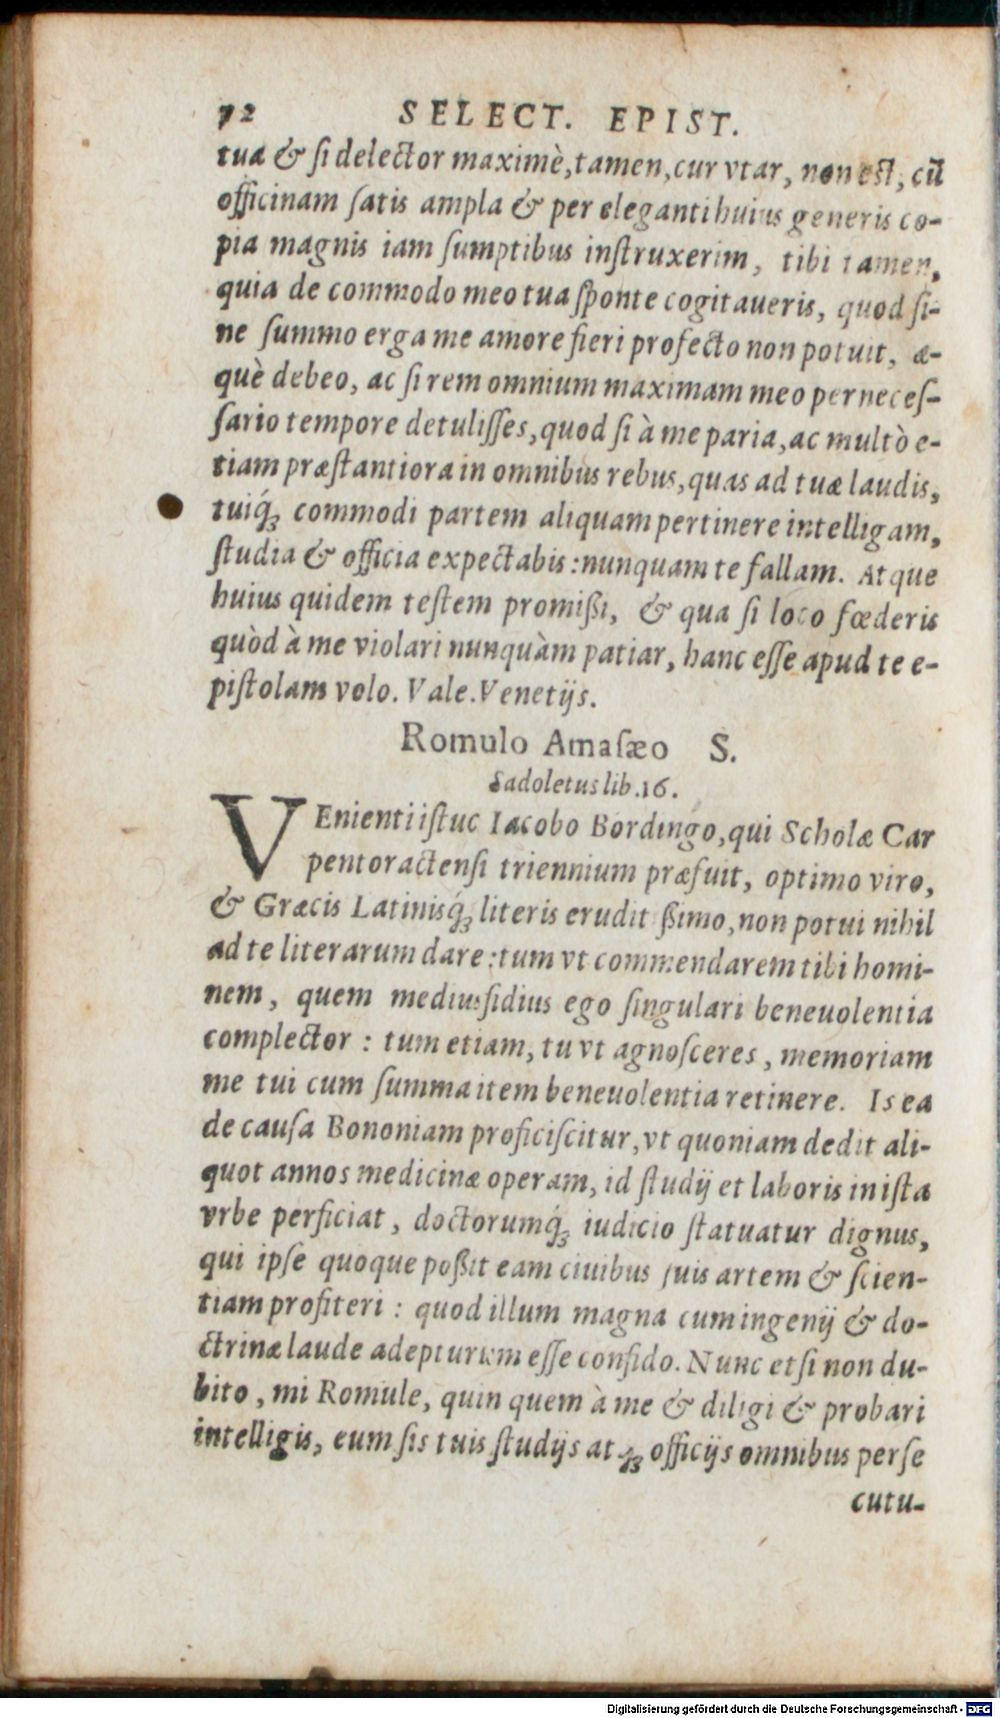 72 SELECT. EPIST.
tua & ſi delector maximè, tamen, cur vtar, non est, cũ
officinam ſatis ampla & per eleganti huius generis co-
pia magnis iam ſumptibus inſtruxerim, tibi tamen,
quia de commodo meo tua ſponte cogitaueris, quod ſi-
ne ſummo erga me amore fieri profecto non potuit, æ-
què debeo, ac ſi rem omnium maximam meo perneceſ-
ſario tempore detuliſſes, quod ſi à me paria, ac multò e-
tiam præſtantiora in omnibus rebus, quas ad tuæ laudis,
tuiq́ꝫ commodi partem aliquam pertinere intelligam,
ſtudia & officia expectabis: nunquam te fallam. Atque
huius quidem teſtem promißi, & qua ſi loco fœderis
quòd à me violari nunquàm patiar, hanc eſſe apud te e-
piſtolam volo. Vale. Venetijs.
Romulo Amaſæo S.
Sadoletus lib. 16.
VEnienti iſtuc Iacobo Bordingo, qui Scholæ Car
pentoractenſi triennium præfuit, optimo viro,
& Græcis Latinisq́ꝫ literis erudit ßimo, non potui nihil
ad te literarum dare: tum vt commendarem tibi homi-
nem, quem mediusfidius ego ſingulari beneuolentia
complector: tum etiam, tu vt agnoſceres, memoriam
me tui cum ſumma item beneuolentia retinere. Is ea
de cauſa Bononiam proficiſcitur, vt quoniam dedit ali-
quot annos medicinæ operam, id ſtudij et laboris in iſta
vrbe perficiat, doctorumq́ꝫ iudicio ſtatuatur dignus,
qui ipſe quoque poßit eam ciuibus ſuis artem & ſcien-
tiam profiteri: quod illum magna cum ingenij & do-
ctrinæ laude adepturum eſſe confido. Nunc etſi non du-
bito, mi Romule, quin quem à me & diligi & probari
intelligis, eum ſis tuis ſtudijs atq́ꝫ officijs omnibus perſe
cutu-
Digitalisierung gefördert durch die Deutsche Forschungsgemeinschaft - DFG